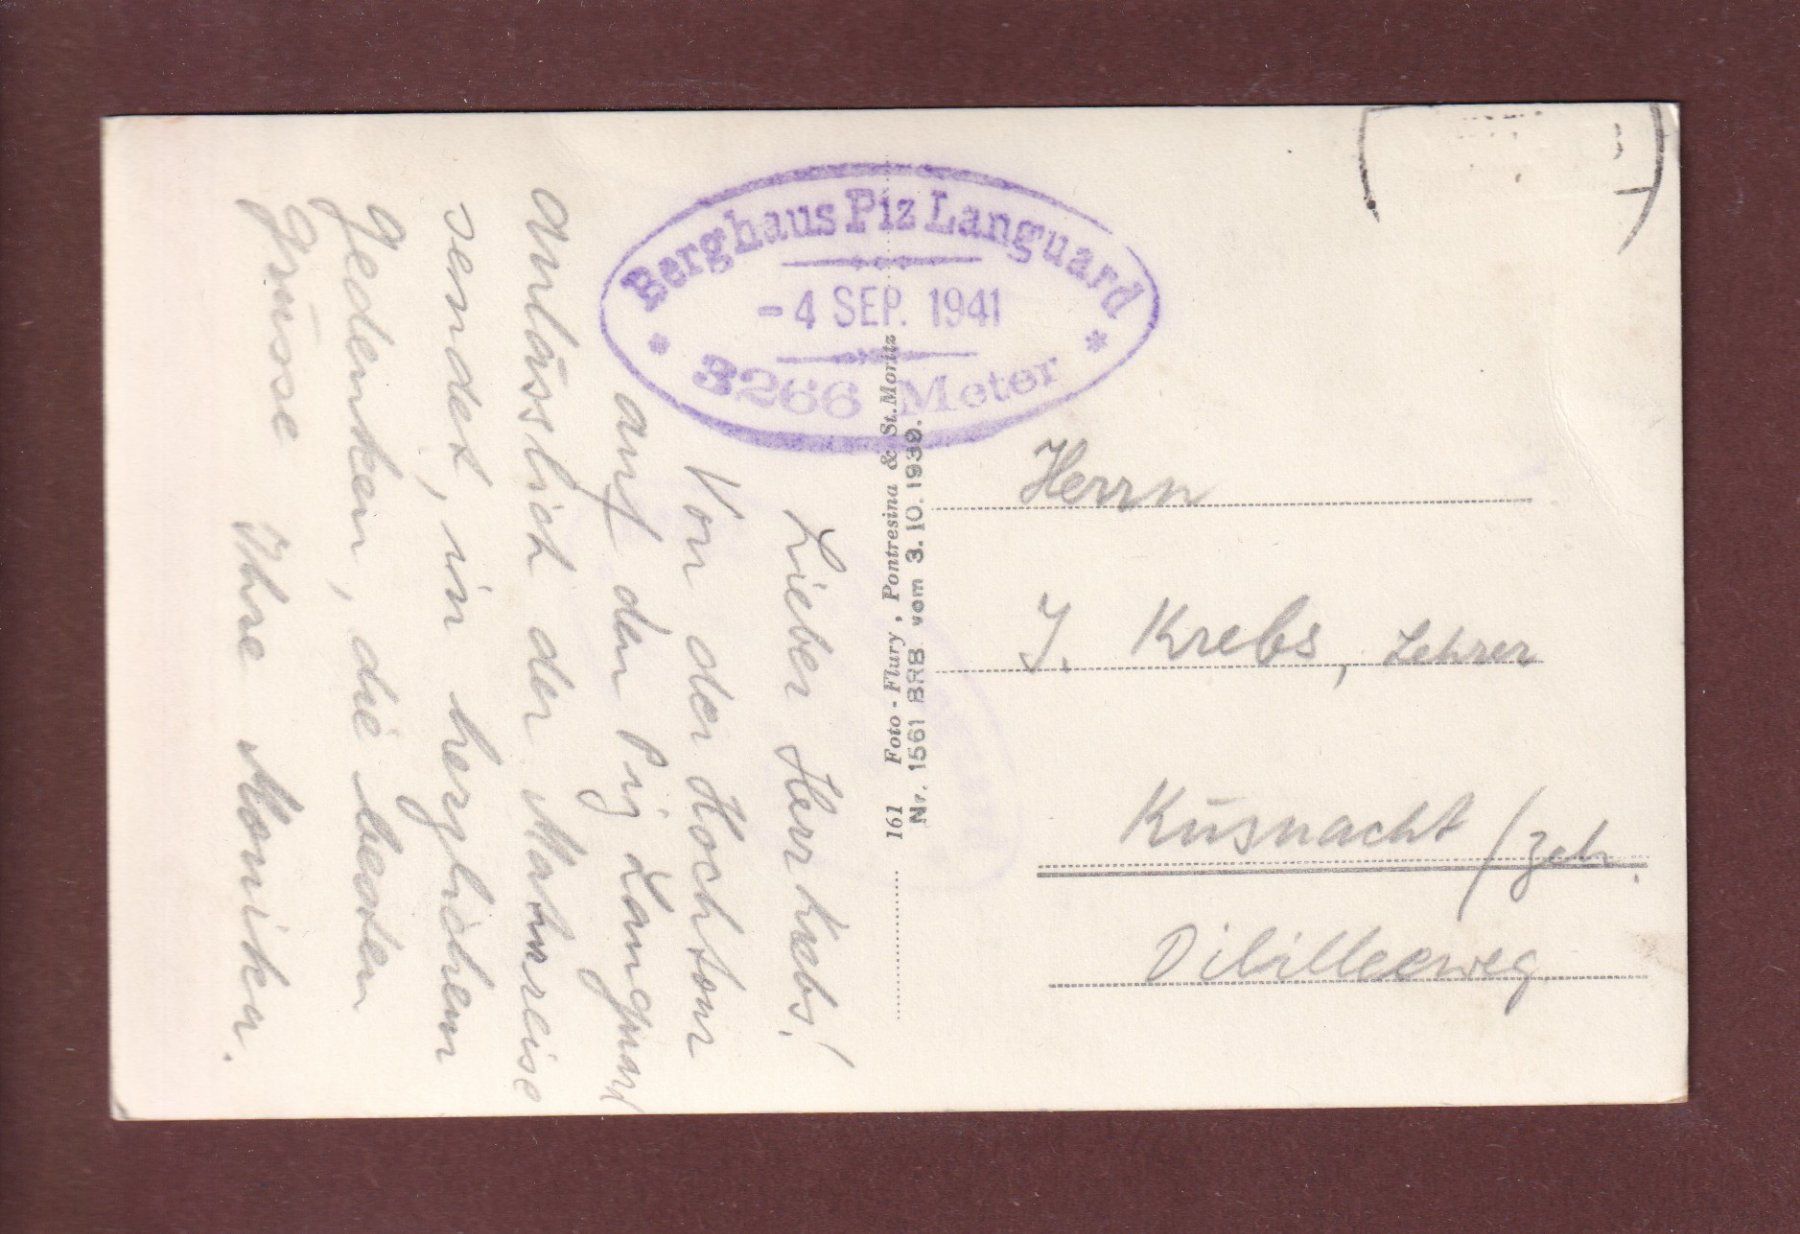 Berghaus Piz Languard
- 4 SEP. 1941
* 3266 Meter *
Lieber Herr Krebs!
Von der Hochtour
auf den Piz Languard
anlässlich der Maturreise
sendet, in herzlichem
Gedenken, die besten
Grüsse Ihre Monika.
161 Foto - Flury, Pontresina & St. Moritz
Nr. 1561 BRB vom 3. 10. 1939.
Herrn
J. Krebs, Lehrer
Küsnacht / Zch.